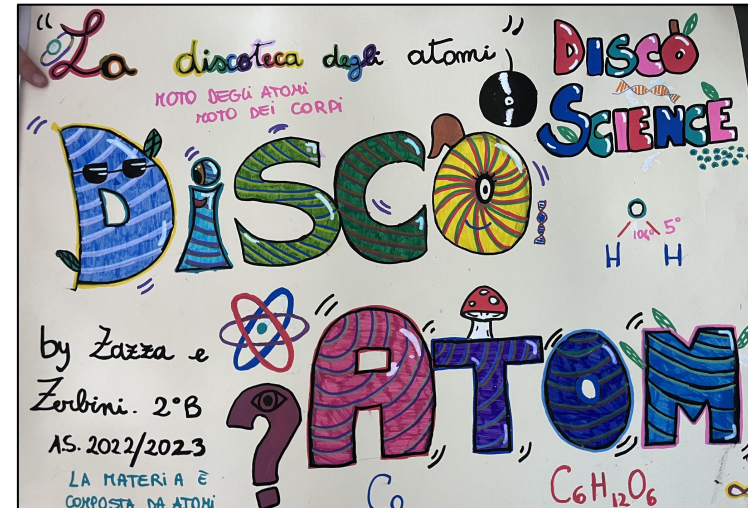 "La discoteca degli atomi"
MOTO DEGLI ATOMI
MOTO DEI CORPI
DISCO
SCIENCE
DiSCO
O
H H
5°
by Zazza e
Zerbini. 2°B
A.S. 2022/2023
?
ATOM
LA MATERIA È
COMPOSTA DA ATOMI
C₆H₁₂O₆